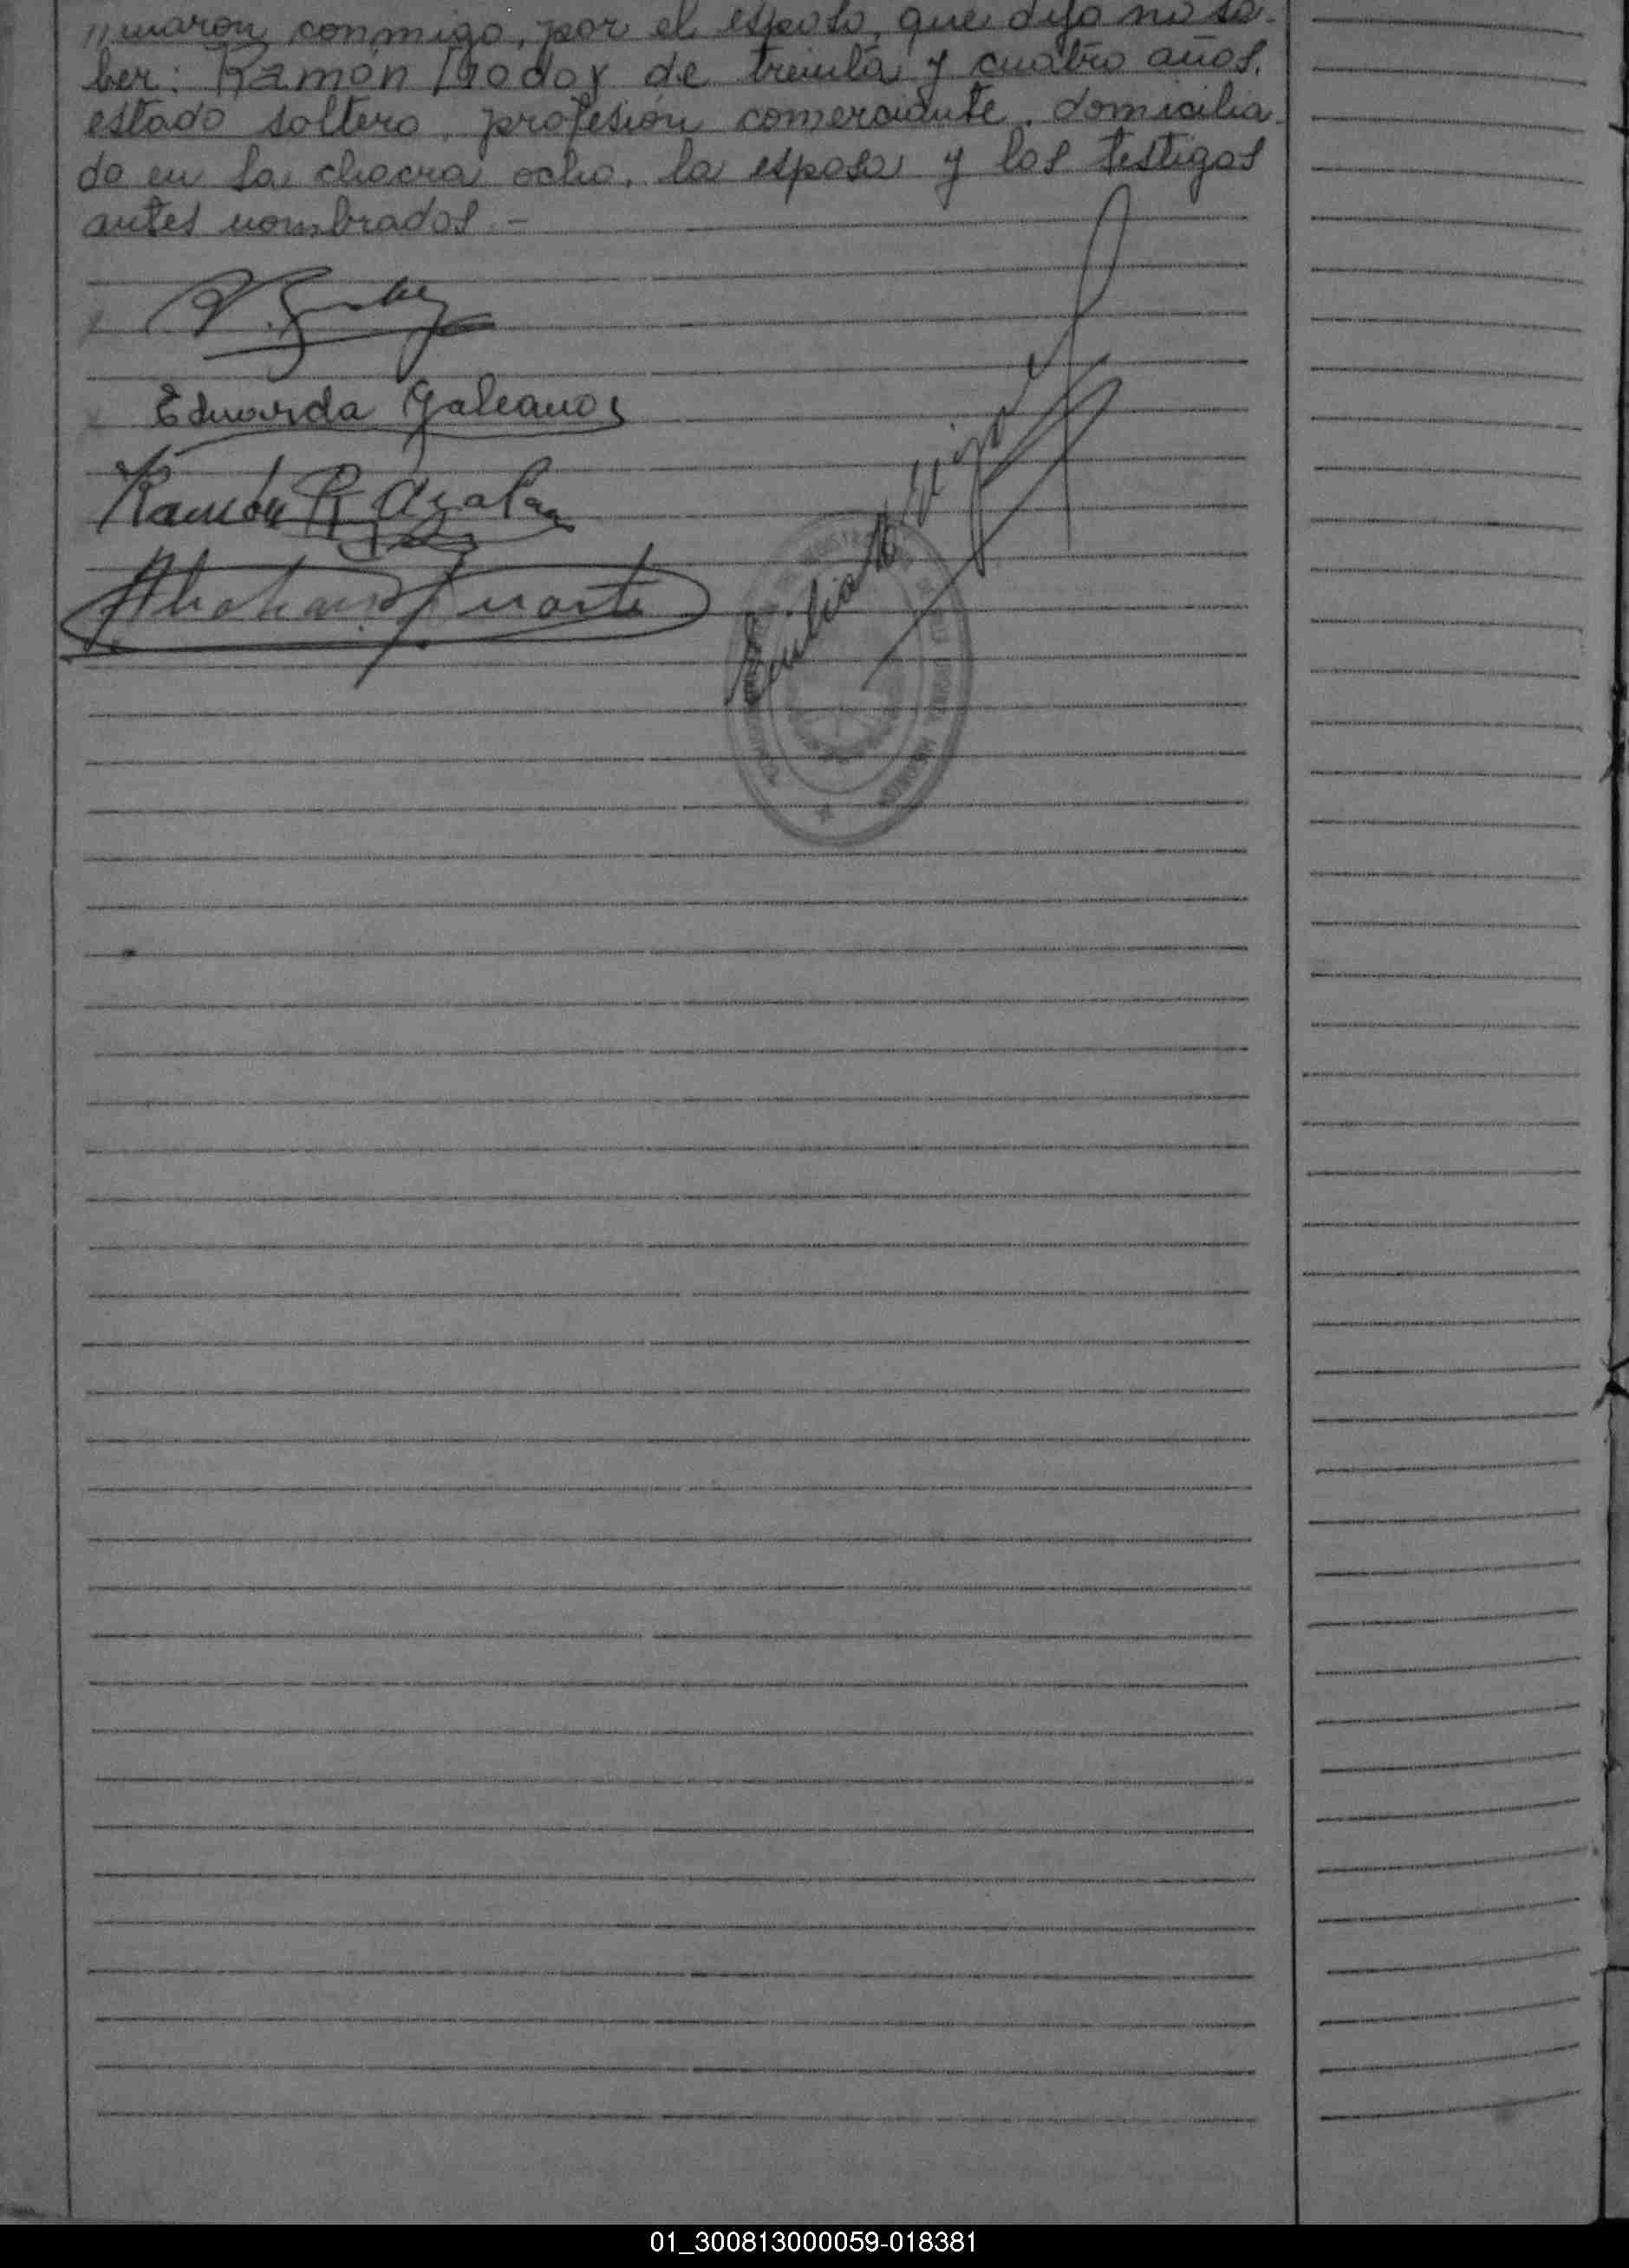 maron conmigo, por el esposo, que dijo no sa-
ber: Ramón Godoy de treinta y cuatro años,
estado soltero, profesión comerciante, domicilia-
do en la chacra ocho, la esposa y los testigos
antes nombrados.-
Eduarda Galeano
Ramón R. Ayala
Duarte
Emilia
01_300813000059-018381